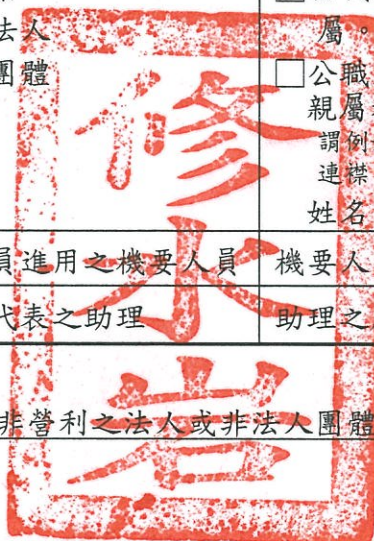 法人
團體
屬。
□公職
親屬
謂例
連襟
姓名
員進用之機要人員
機要人
代表之助理
助理之
非營利之法人或非法人團體
修水岩